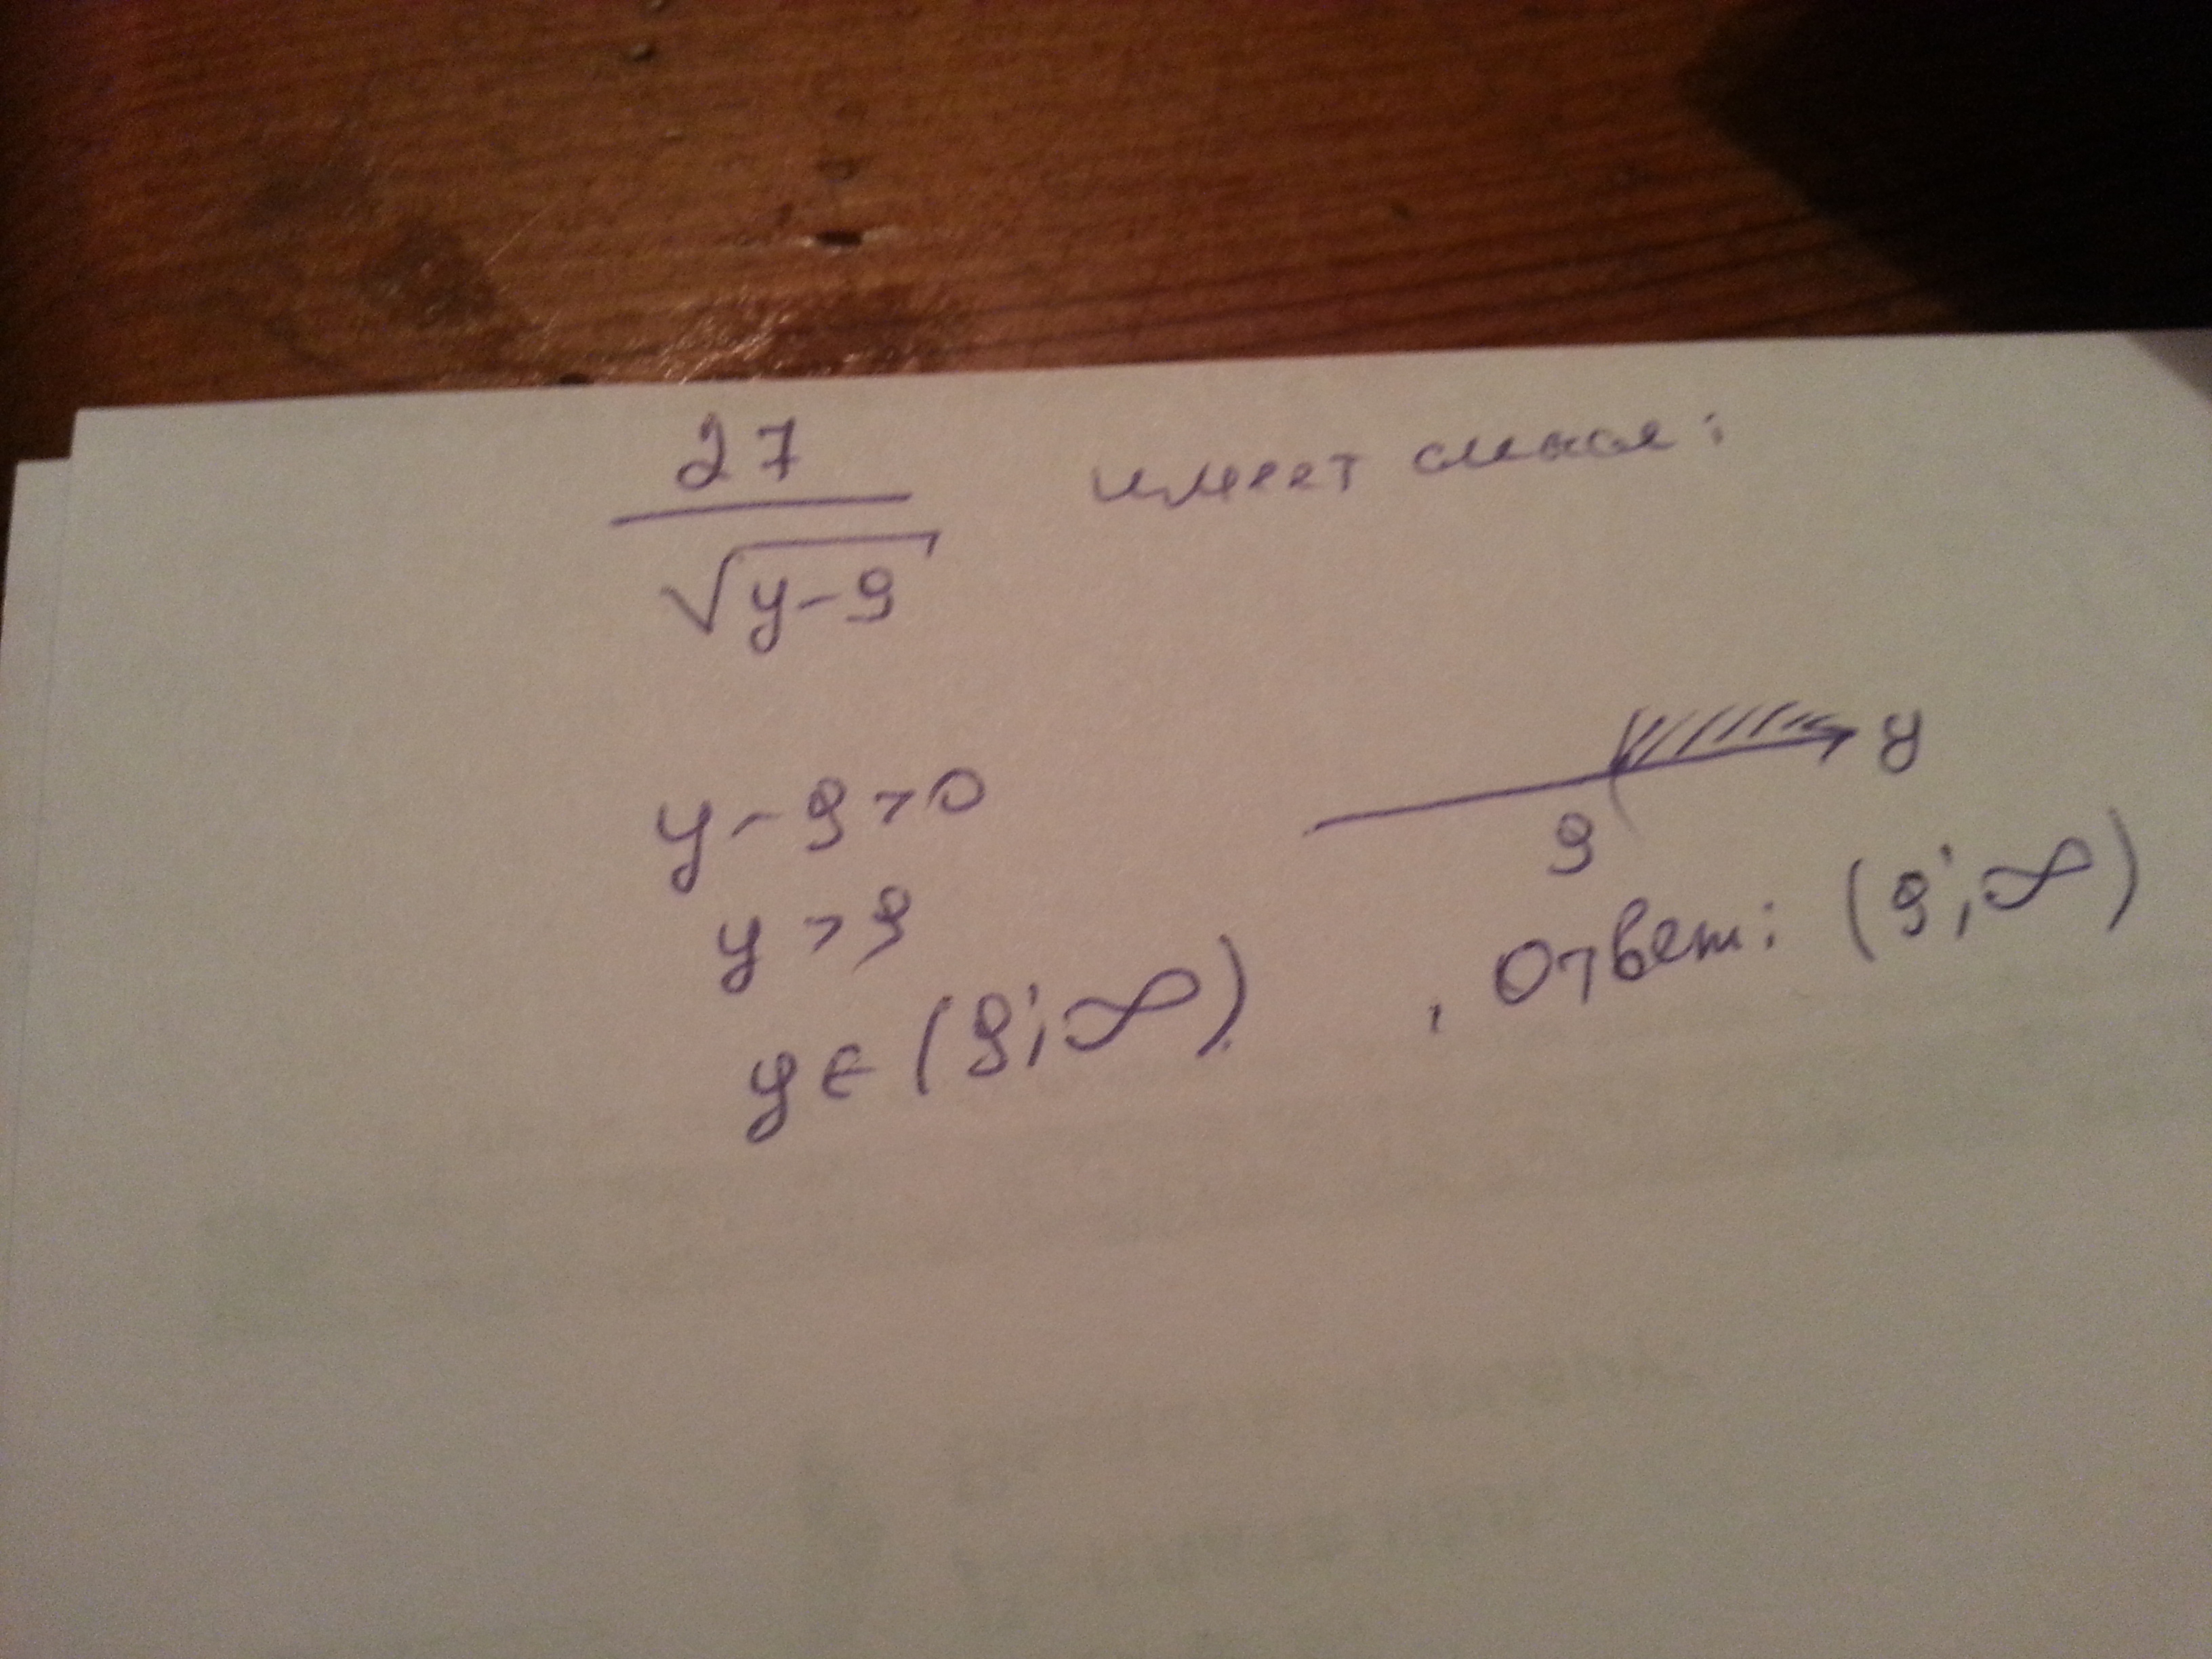 27 / √(y-9) имеет смысл:
y-9>0
y>9
y∈(9;∞)
9 y
, Ответ: (9;∞)